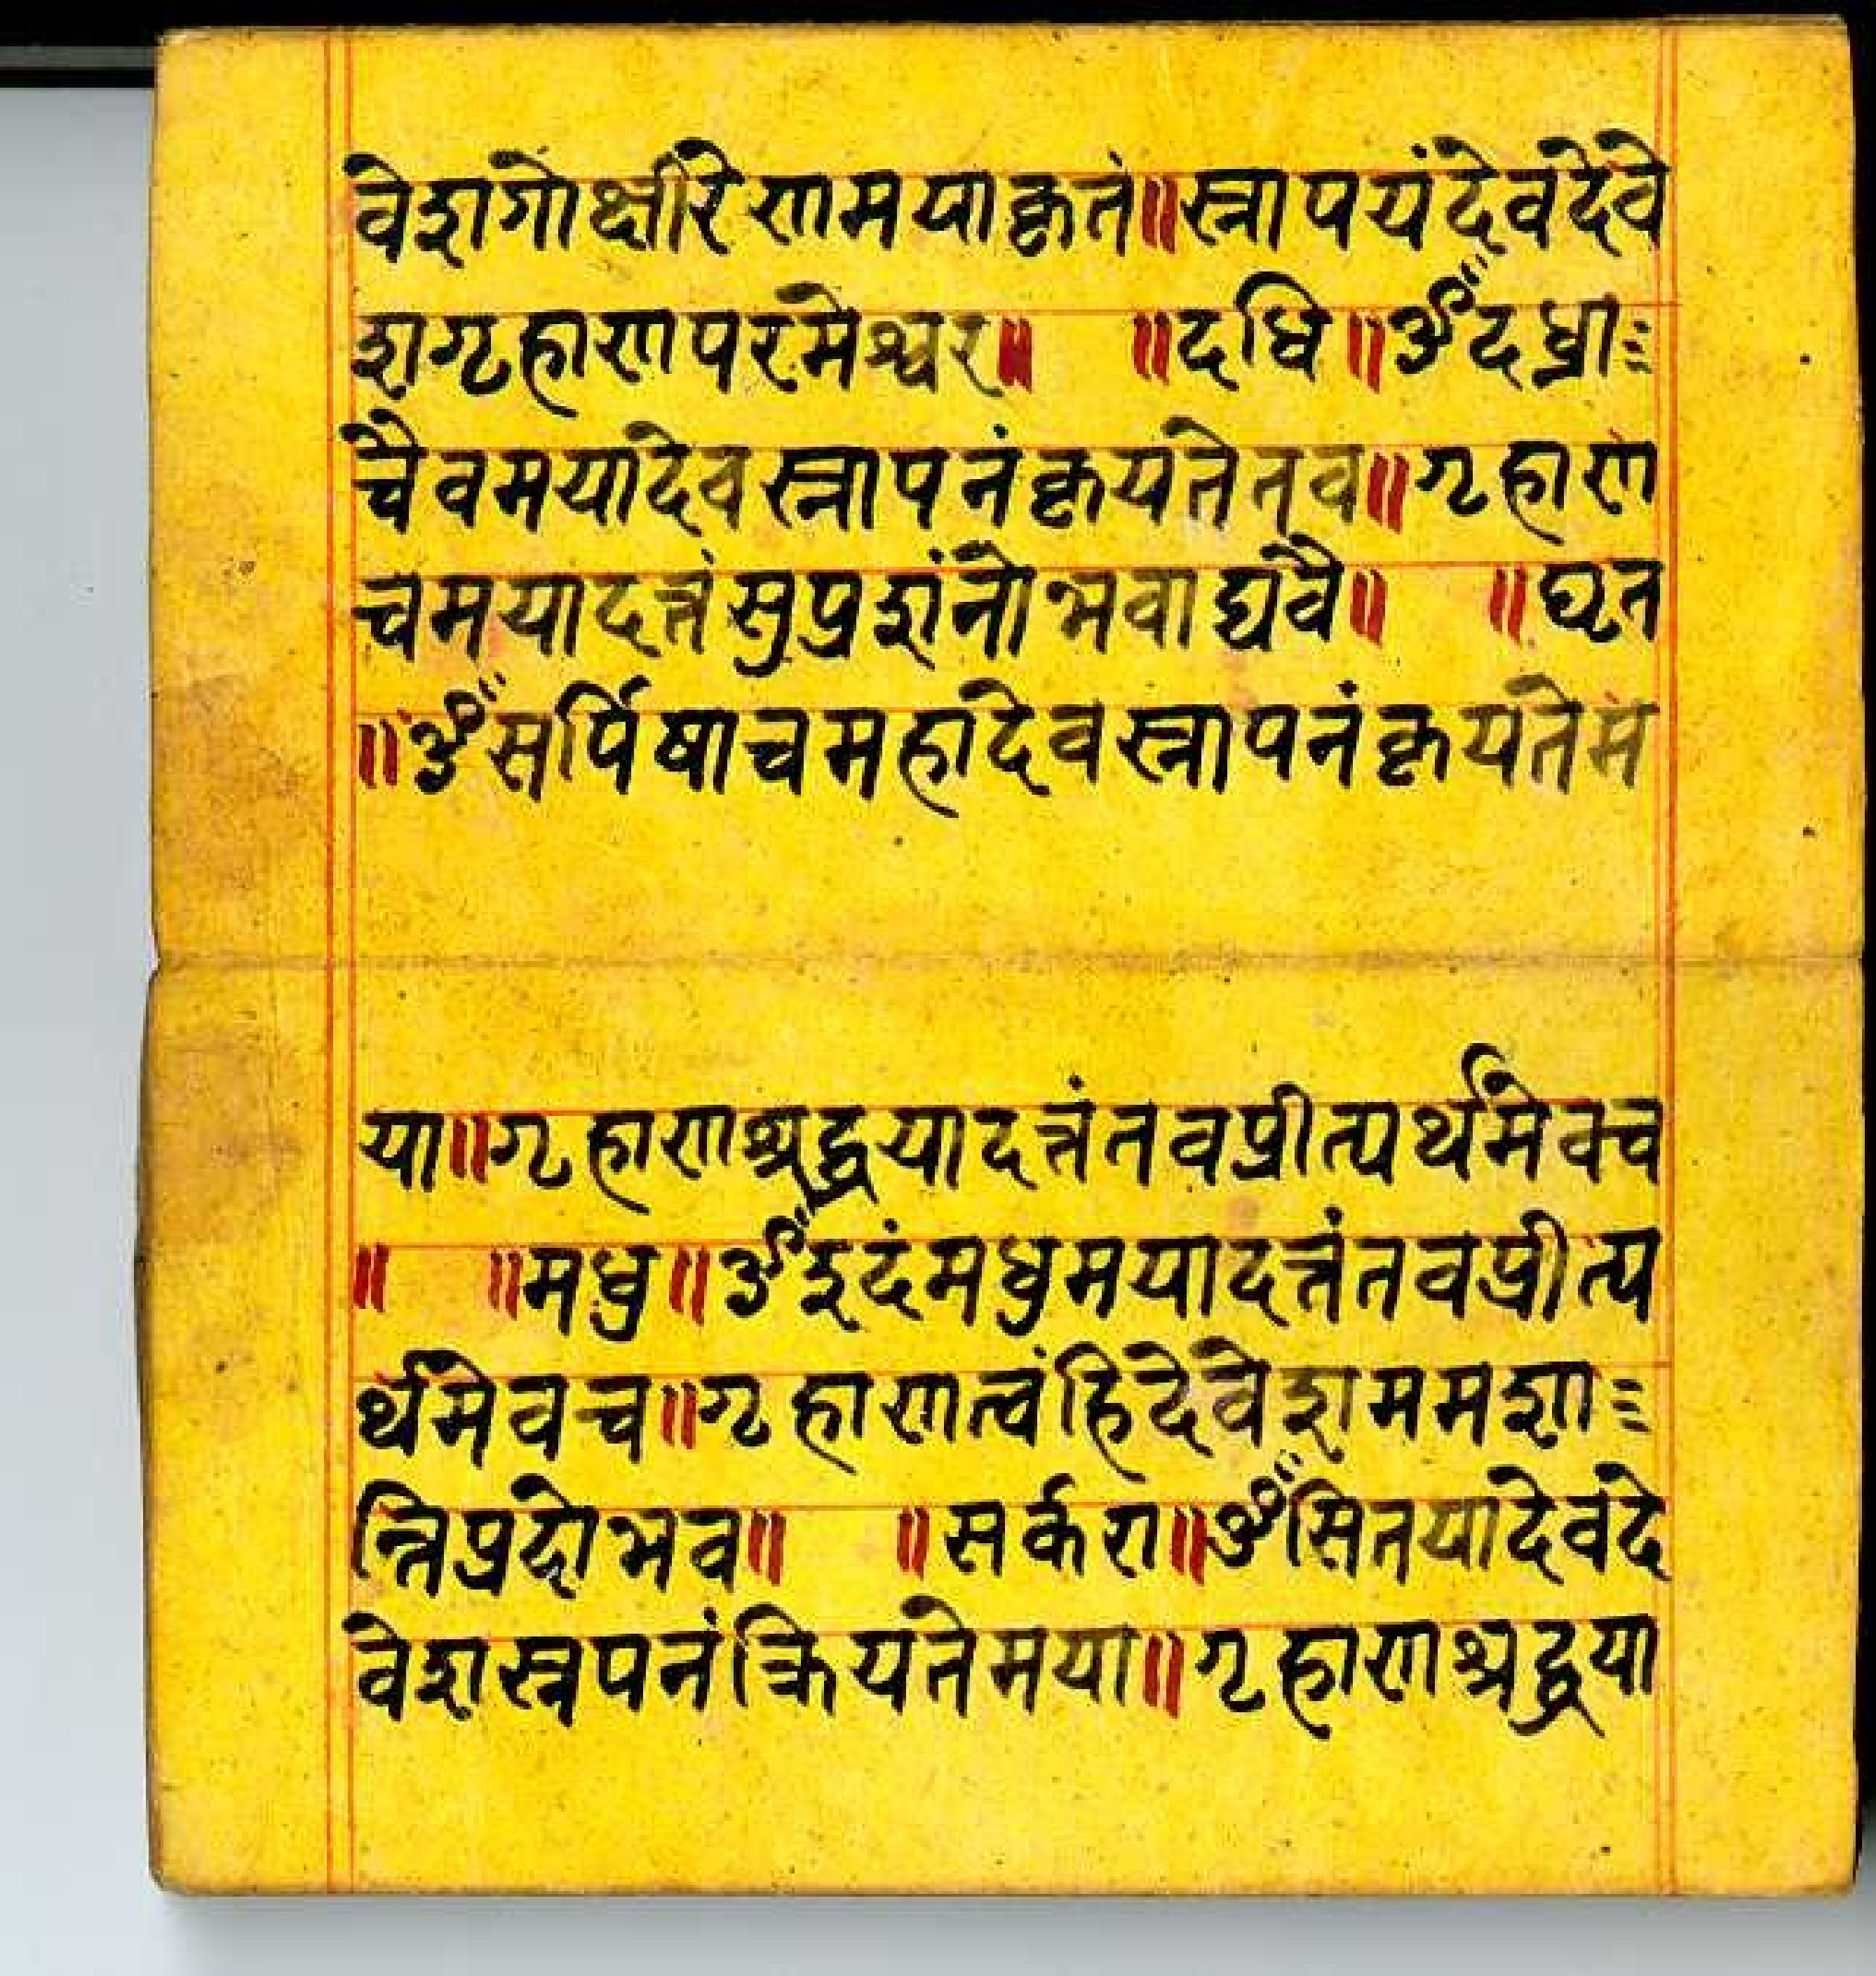 वेशगोक्षीरेणमयाकृतं॥स्नापयंदेवदेवे
शगृहाणपरमेश्वर॥ ॥दधि॥ॐदध्ना
चैवमयादेवस्नापनंकृयतेतव॥गृहाण
चमयादत्तंसुप्रशंनोभवाद्यवै॥ ॥घृत
॥ॐसर्पिषाचमहादेवस्नापनंकृयतेम
या॥गृहाणश्रद्धयादत्तंतवप्रीत्यर्थमेवच
॥ ॥मधु॥ॐइदंमधुमयादत्तंतवप्रीत्य
र्थमेवच॥गृहाणत्वंहिदेवेशममशा
न्तिप्रदोभव॥ ॥सर्करा॥ॐसितयादेवदे
वेशस्नपनंक्रियतेमया॥गृहाणश्रद्धया